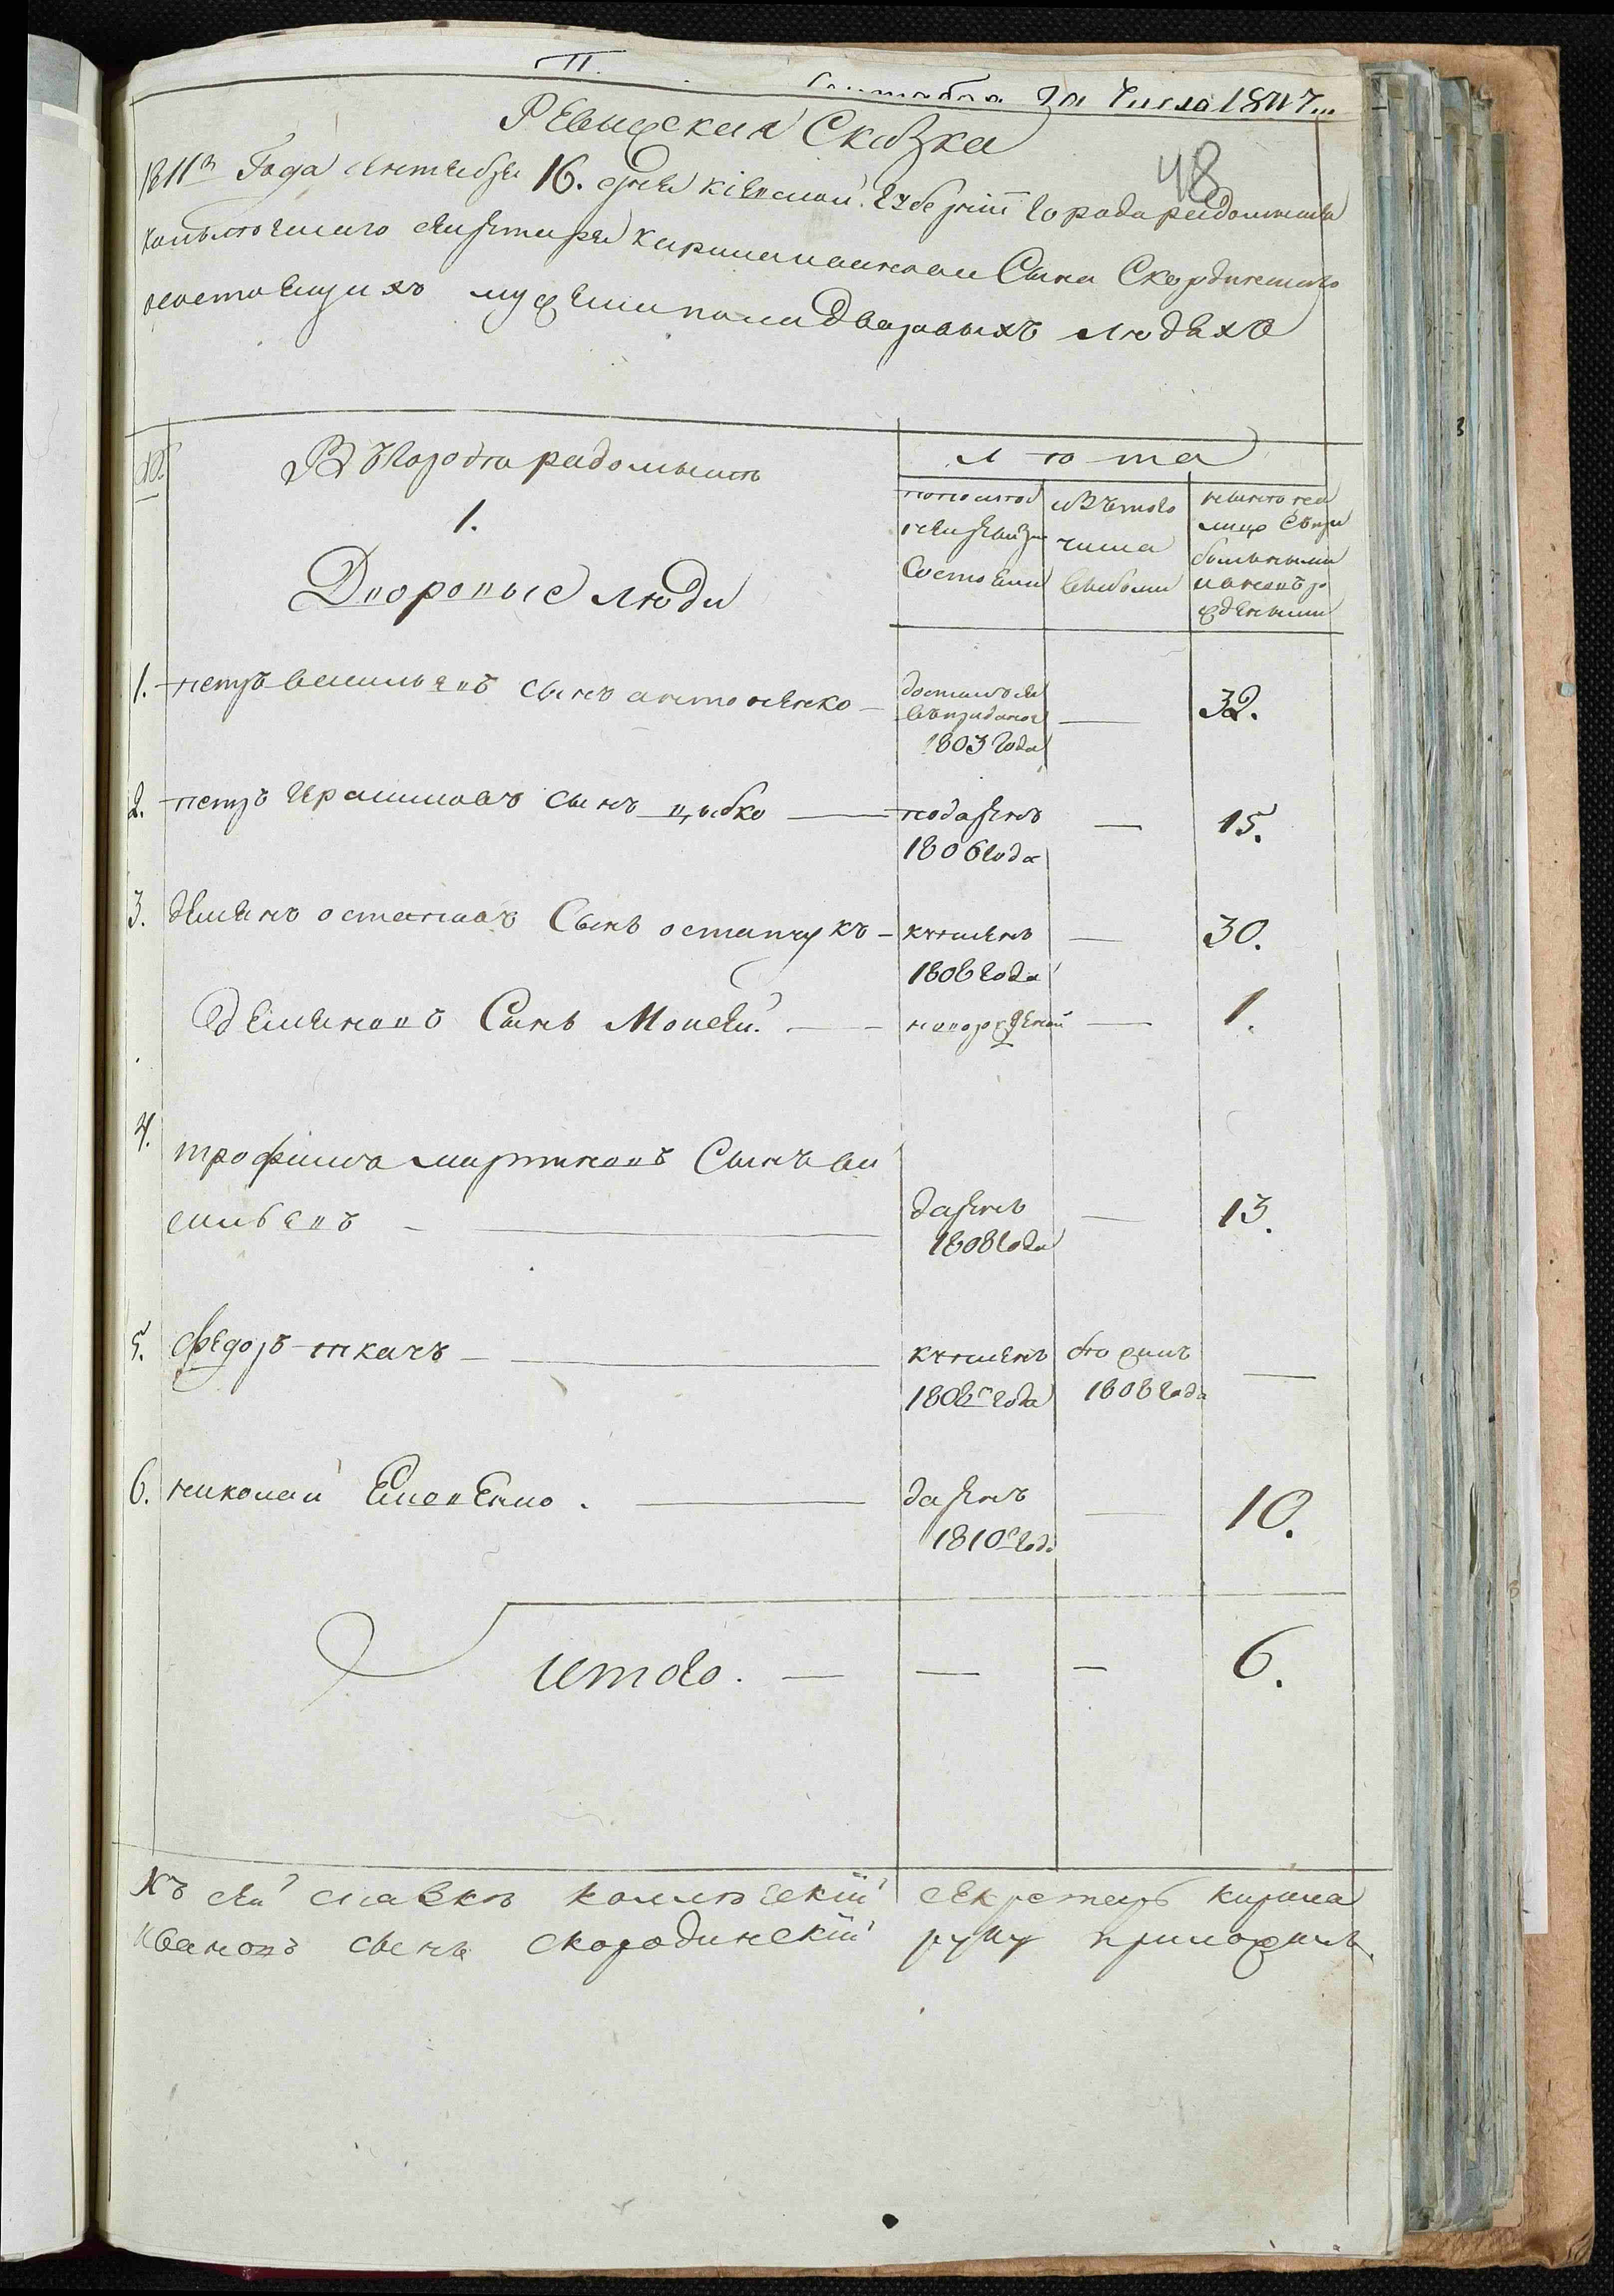 П.
Сентября 30 Числа 1811
Ревизская Сказка
48
1811го Года сентября 16. дня кіевской губерніи города радомышля
колъліожскаго секретаря кирила иванова Сына Скординскаго
состоящихъ мужеска пола дворовыхъ людяхъ
№
Въ Городѣ радомышлѣ
лѣта
1.
Дворовые люди
по последной ревизіи Состояли
изъ того числа выбыли
нынѣ на лицо съ прибылыми и новорожденными
1. петръ васильевъ сынъ антоненко — досталося въ приданое 1803 года — 32.
2. петръ Герасимовъ сынъ цыбко — подаренъ 1806 года — 15.
3. демянъ остаповъ Сынъ остапчукъ — купленъ 1808 года — 30.
демяновъ Сынъ Моисей. — новорожденой — 1.
4. трофимъ мартиновъ Сынъ ва
сильевъ — даренъ 1808 года — 13.
5. федоръ ткачъ — купленъ 1806го года бѣжалъ 1808 года —
6. николай — даренъ 1810го года — 10.
Итого. — — — 6.
Къ сей скаскѣ коллежскій секретарь кирила
Ивановъ сынъ скородинскій руку приложилъ.